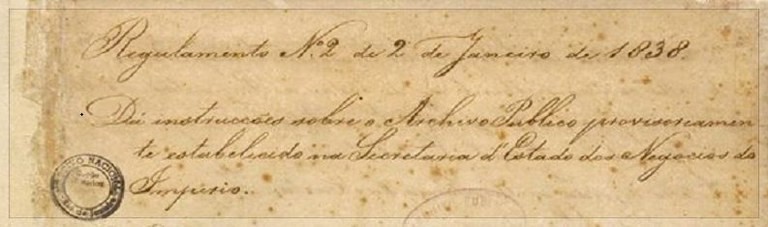 Regulamento N.º 2 de 2 de Janeiro de 1838.
Dá instrucções sobre o Archivo Publico provisoriamen
te estabelecido na Secretaria d'Estado dos Negocios do
Imperio.
NACIONAL